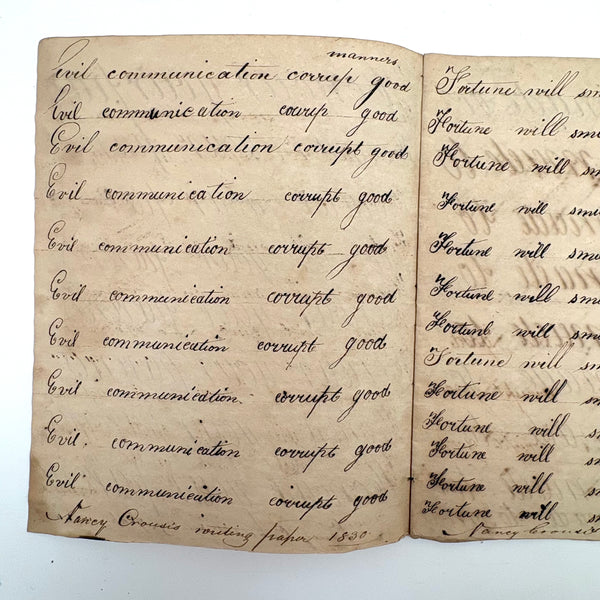 manners
Evil communication corrup good
Evil communication corrup good
Evil communication corrupt good
Evil communication corrupt good
Evil communication corrupt good
Evil communication corrupt good
Evil communication corrupt good
Evil communication corrupt good
Evil communication corrupt good
Evil communication corrupt good
Nancy Crousis writing paper 1830
Fortune will sm
Fortune will smi
Fortune will sm
Fortune will smi
Fortune will smi
Fortune will smi
Fortune will smi
Fortune will sm
Fortune will sm
Fortune will sm
Fortune will sm
Fortune will sm
Fortune will sm
Nancy Crousis